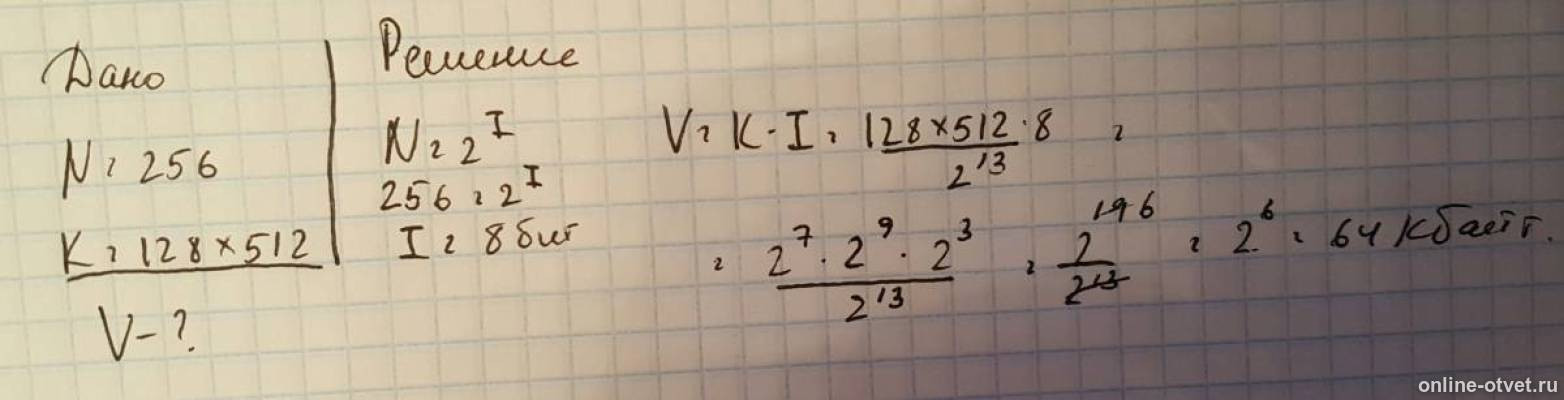 Дано
N = 256
K = 128 × 512
V - ?
Решение
N = 2^I
256 = 2^I
I = 8 бит
V = K · I = 128 × 512 · 8 / 2^13 =
= 2^7 · 2^9 · 2^3 / 2^13 = 2^19 6 / 2^13 = 2^6 = 64 Кбайт.
online-otvet.ru